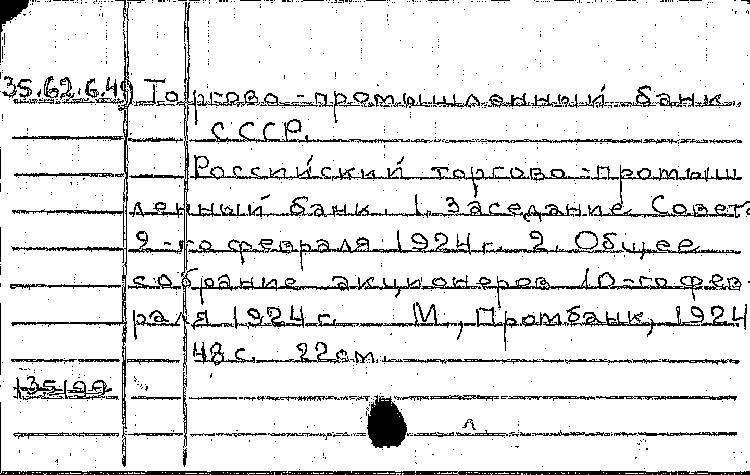 35.62.6.49 Торгово-промышленный банк
СССР.
Российский торгово-промыш
ленный банк. 1. Заседание Совета
2-го февраля 1924 г. 2. Общее
собрание акционеров 10-го фев-
раля 1924 г. М., Промбанк, 1924
48 с. 22 см.
135199